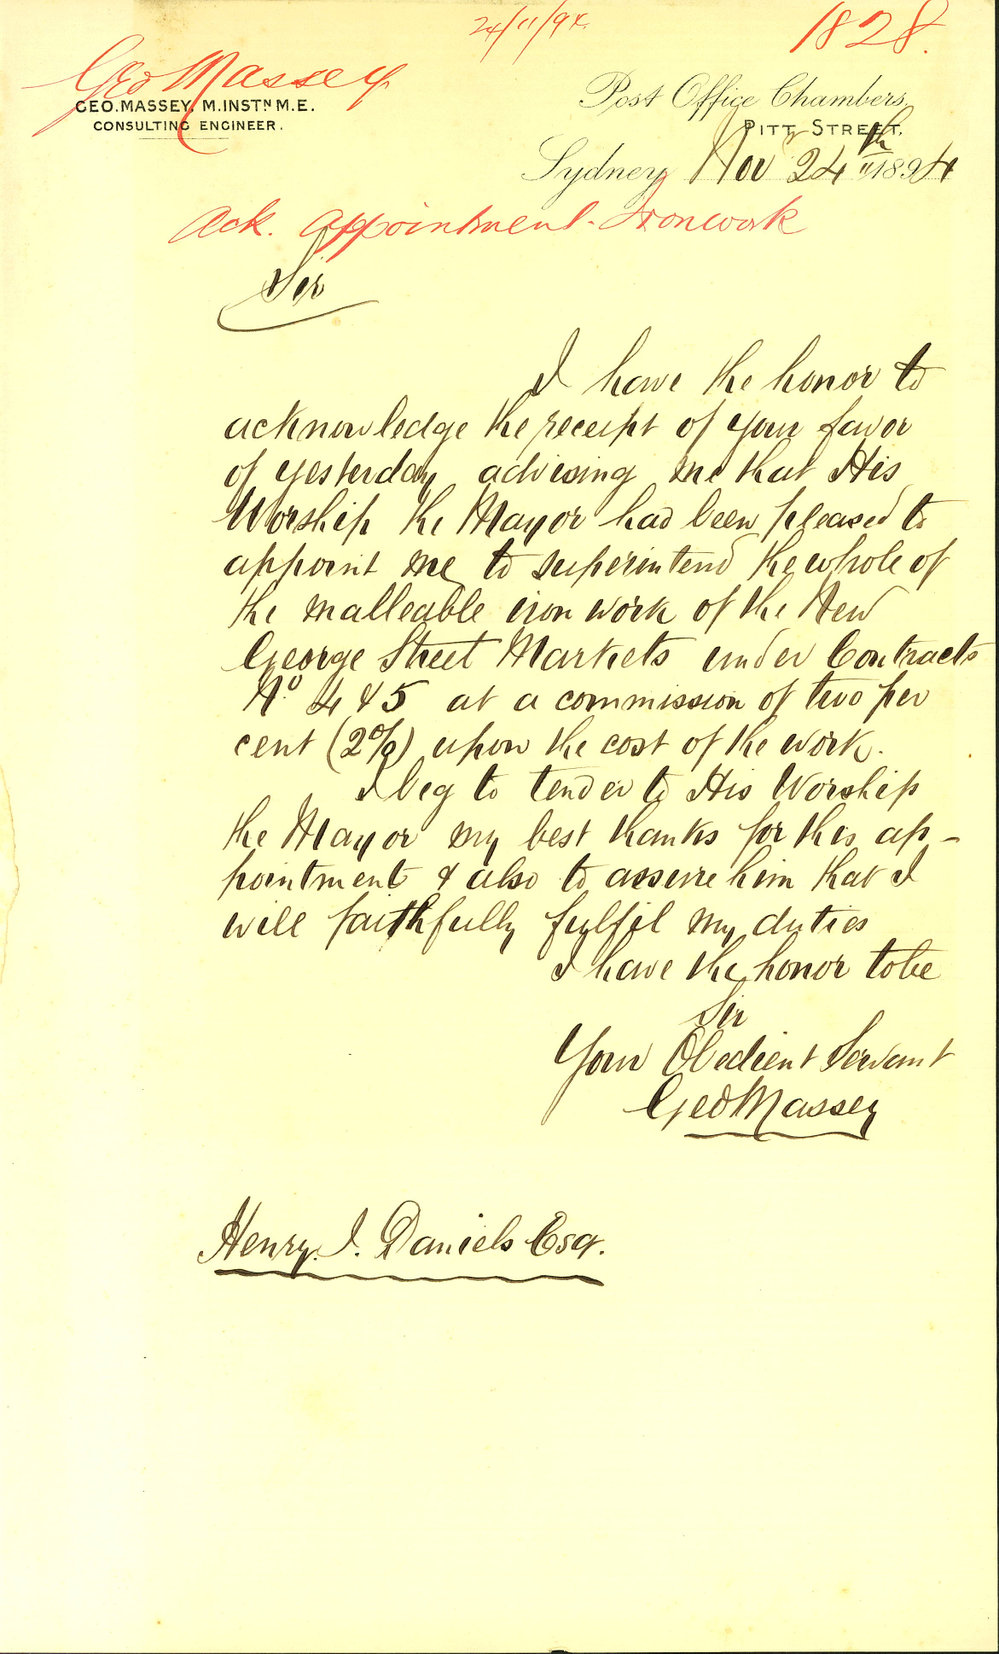 24/11/94.
1828.
Geo Massey
GEO. MASSEY, M.INSTN M.E.
CONSULTING ENGINEER.
Post Office Chambers,
PITT STREET.
Sydney, Nov 24th 1894
Ack. appointment - Ironwork
Sir
I have the honor to
acknowledge the receipt of your favor
of yesterday advising me that His
Worship the Mayor had been pleased to
appoint me to superintend the whole of
the malleable iron work of the New
George Street Markets under Contracts
No 4 & 5 at a commission of two per
cent (2%) upon the cost of the work.
I beg to tender to His Worship
the Mayor my best thanks for this ap-
pointment & also to assure him that I
will faithfully fulfil my duties
I have the honor to be
Sir
Your Obedient Servant
Geo Massey
Henry. J. Daniels Esqr.